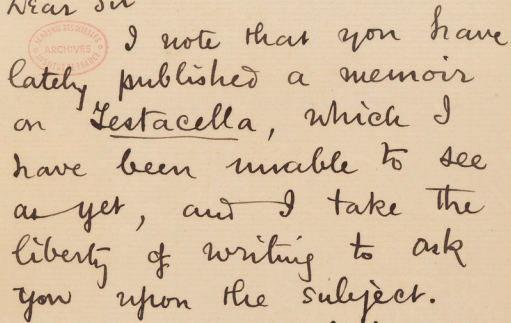 Dear Sir
I note that you have
lately published a memoir
on Testacella, which I
have been unable to see
as yet, and I take the
liberty of writing to ask
you upon the subject.
ARCHIVES